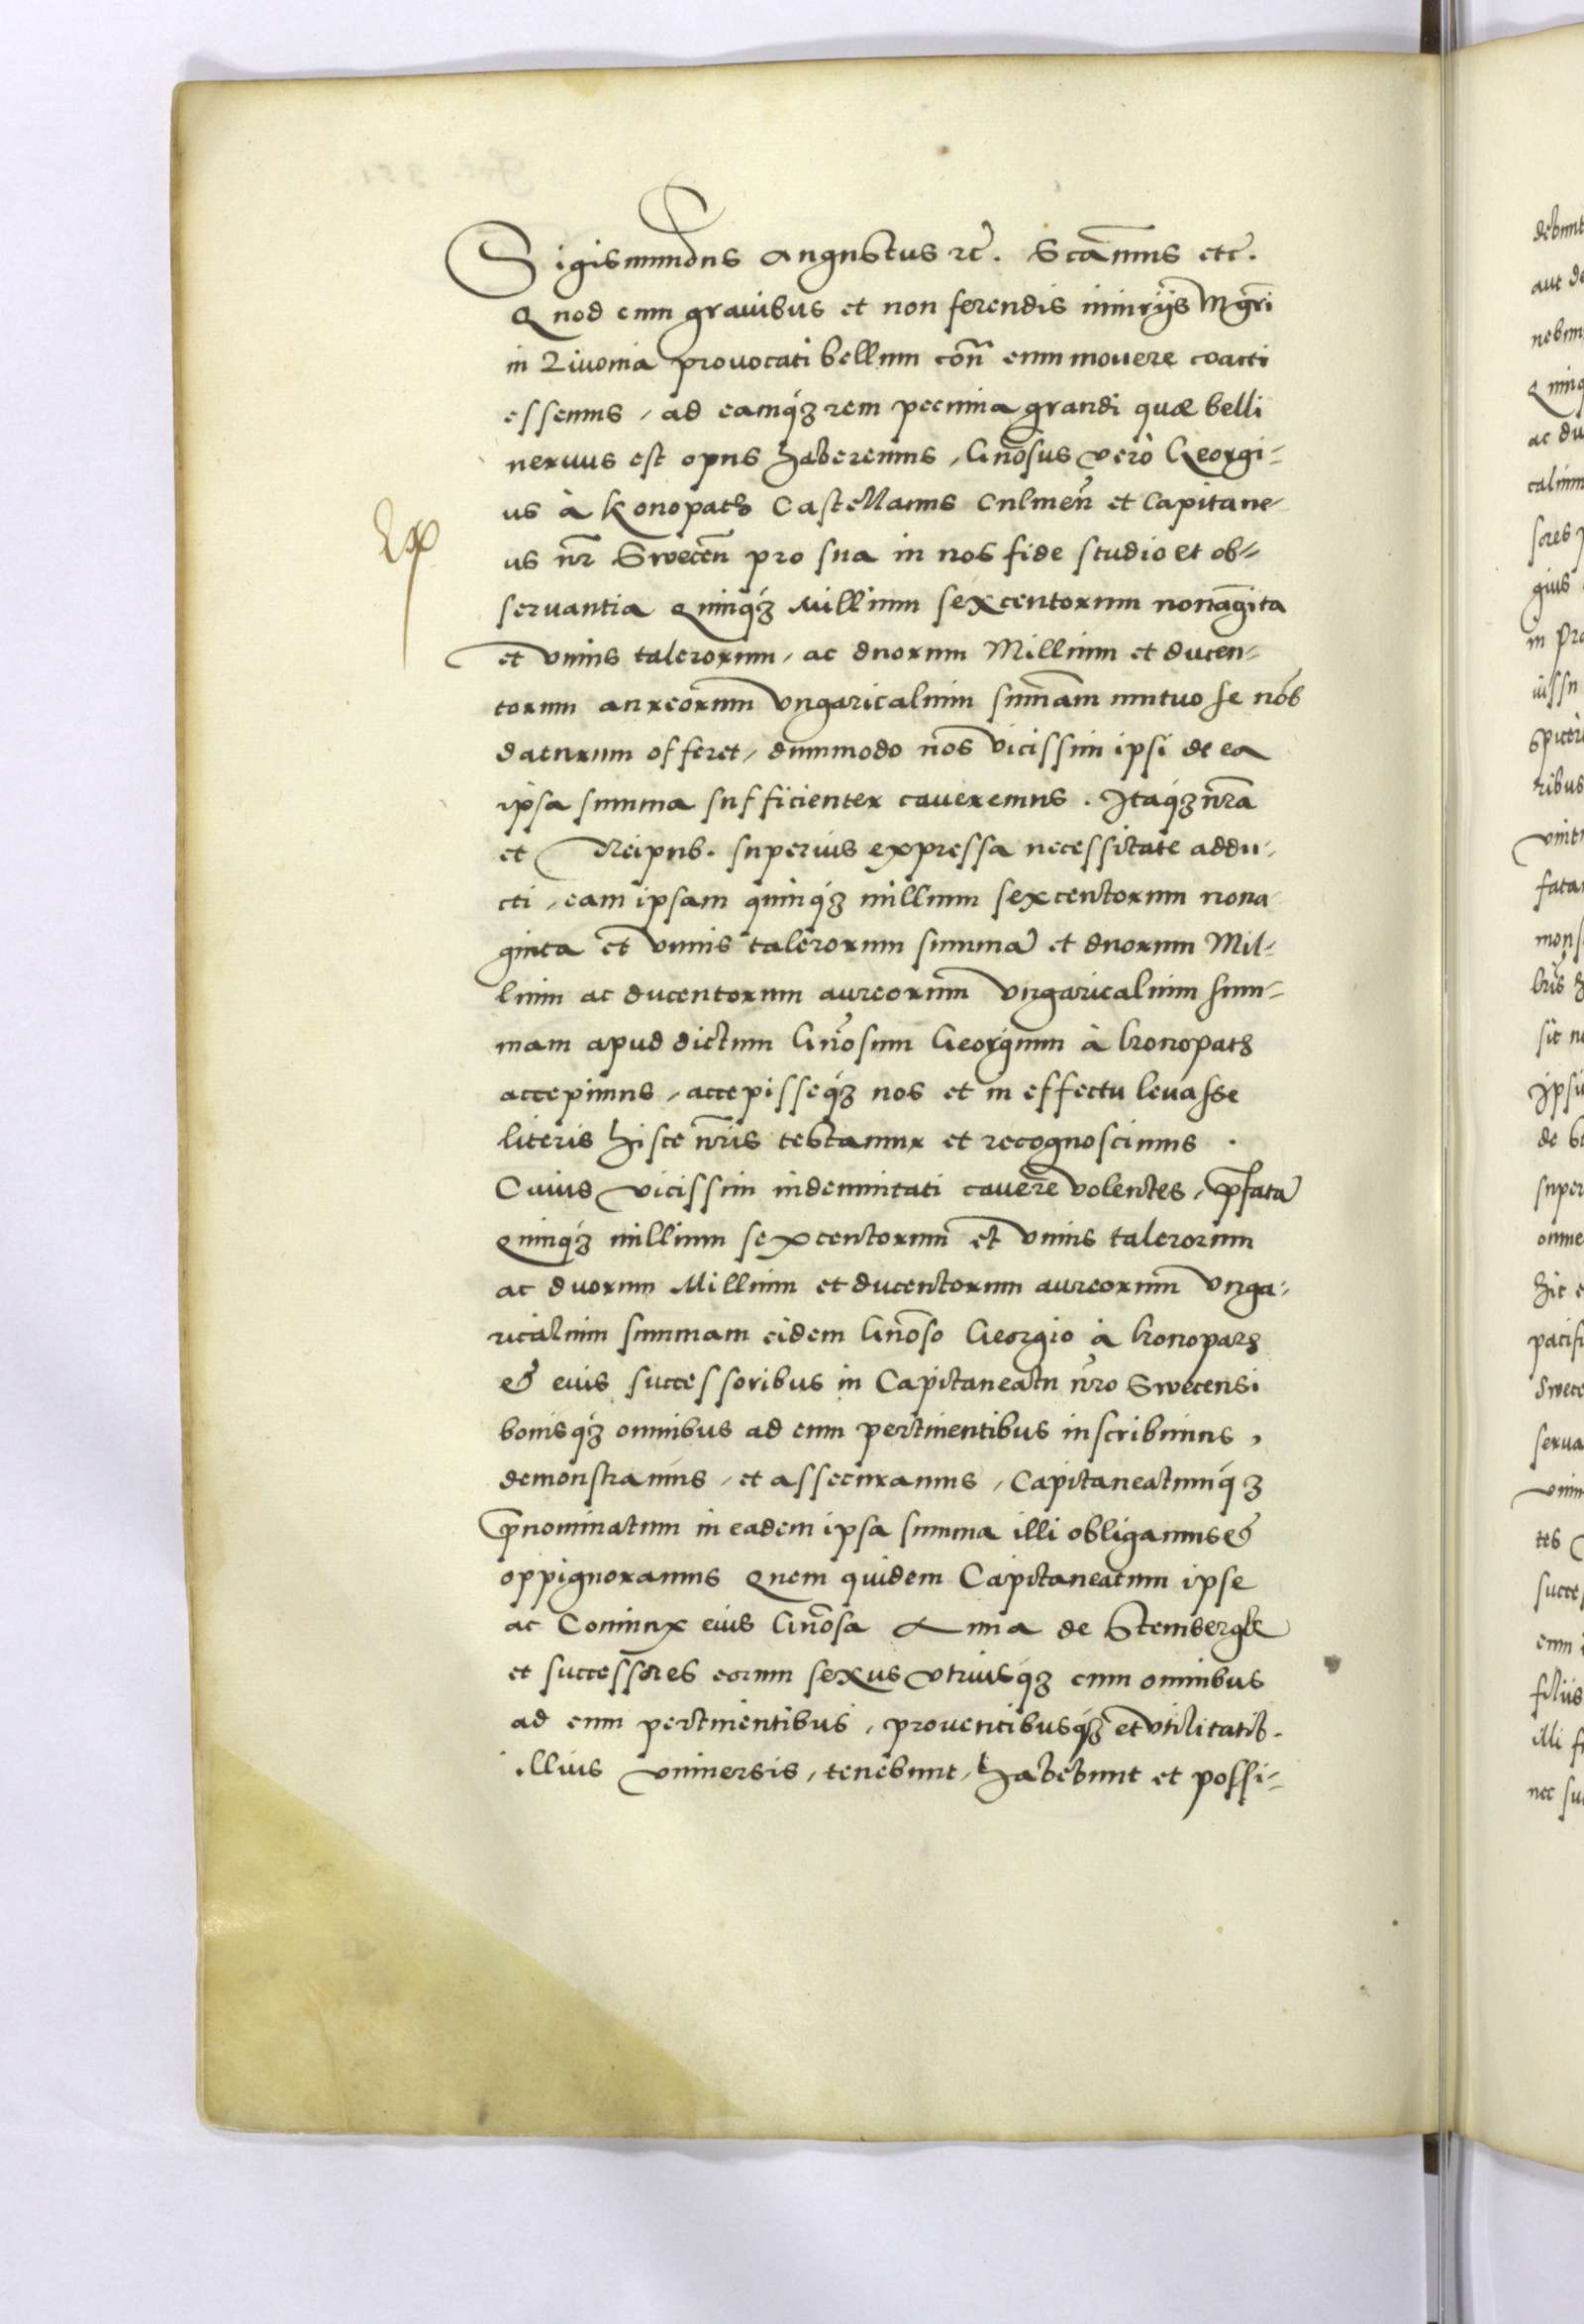 Sigismundus Augustus rc̃. Scãmus etc̃.
Quod cum grauibus et non ferendis iniurijs Mgr̃i
in Liuonia prouocati bellum con̄ eum mouere coacti
essemus, ad eamq́3 rem pecunia grandi quæ belli
neruus est opus haberemus, Gn̄osus verò Georgi=
us à Konopath Castellanus Culmen̄ et Capitane-
us nr̄ Swecen̄ pro sua in nos fide studio et ob=
seruantia Quinq́3 Millium sexcentorum nonagīta
et vnius talerorum, ac duorum Millium et ducen=
torum aureorum vngaricalium summam mutuo se nob̄
daturum offeret, dummodo nos vicissim ipsi de ea
ipsa summa sufficienter caueremus. Itaq́3 nr̄a
et Reipub. superius expressa necessitate addu-
cti, eam ipsam quinq́3 millium sexcentorum nona
ginta et vnius talerorum summā et duorum Mil=
lium ac ducentorum aureorum vngaricalium sum=
mam apud dictum Gn̄osum Georgium à Konopath
accepimus, accepisseq́3 nos et in effectu leuasse
literis hisce nr̄is testamur et recognoscimus.
Cuius vicissim indemnitati cauere volentes, p̄fatā
Quinq́3 millium sexcentorum et vnius talerorum
ac duorum Millium et ducentorum aureorum vnga-
ricalium summam eidem Gn̄oso Georgio à Konopath
& eius successoribus in Capitaneatu nr̄o Swecensi
bonisq́3 omnibus ad eum pertinentibus inscribimus,
demonstramus, et assecuramus, Capitaneatumq́3
p̄nominatum in eadem ipsa summa illi obligamus &
oppignoramus Quem quidem Capitaneatum ipse
ac Coniunx eius Gn̄osa Anna de Stemsergk
et successores eorum sexus vtriusq́3 cum omnibus
ad eum pertinentibus, prouentibusq́3 et vtilitatib.
illius vniuersis, tenebunt, habebunt et possi=
Exp